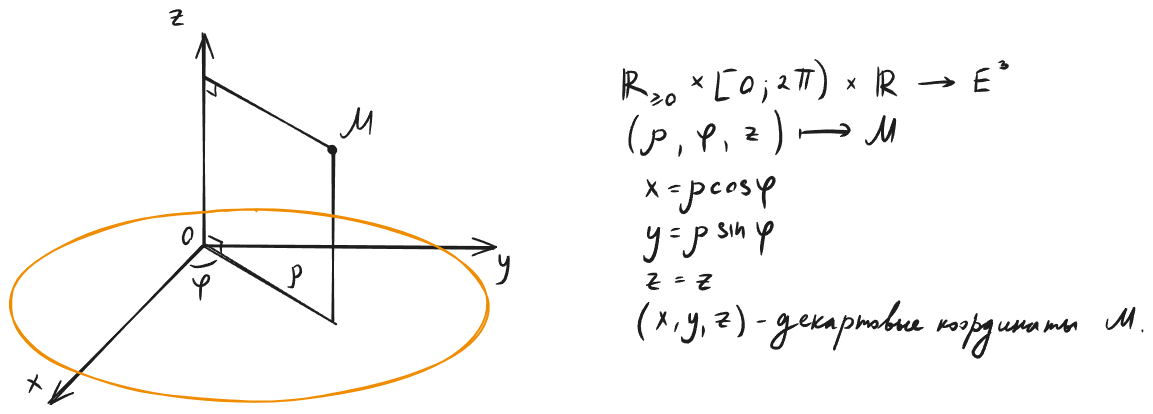 z
M
O
y
φ
ρ
x
ℝ≥0 × [0; 2π) × ℝ → E³
(ρ, φ, z) ⟼ M
x = ρ cos φ
y = ρ sin φ
z = z
(x, y, z) - декартовые координаты M.